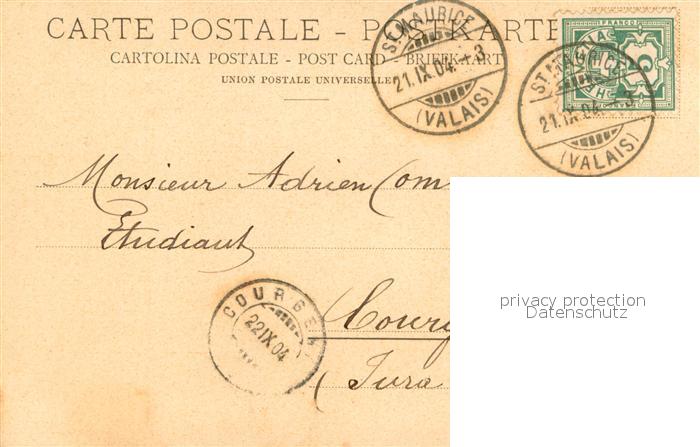 CARTE POSTALE - POSTKARTE
CARTOLINA POSTALE - POST CARD - BRIEFKAART
UNION POSTALE UNIVERSELLE
ST. MAURICE
21.IX.04. - 3
(VALAIS)
FRANCO
ST. MAURICE
21.IX.04. - 3
(VALAIS)
Monsieur Adrien Com
Etudiant
COURGEN
22 IX 04
Courg
(Jura
privacy protection
Datenschutz